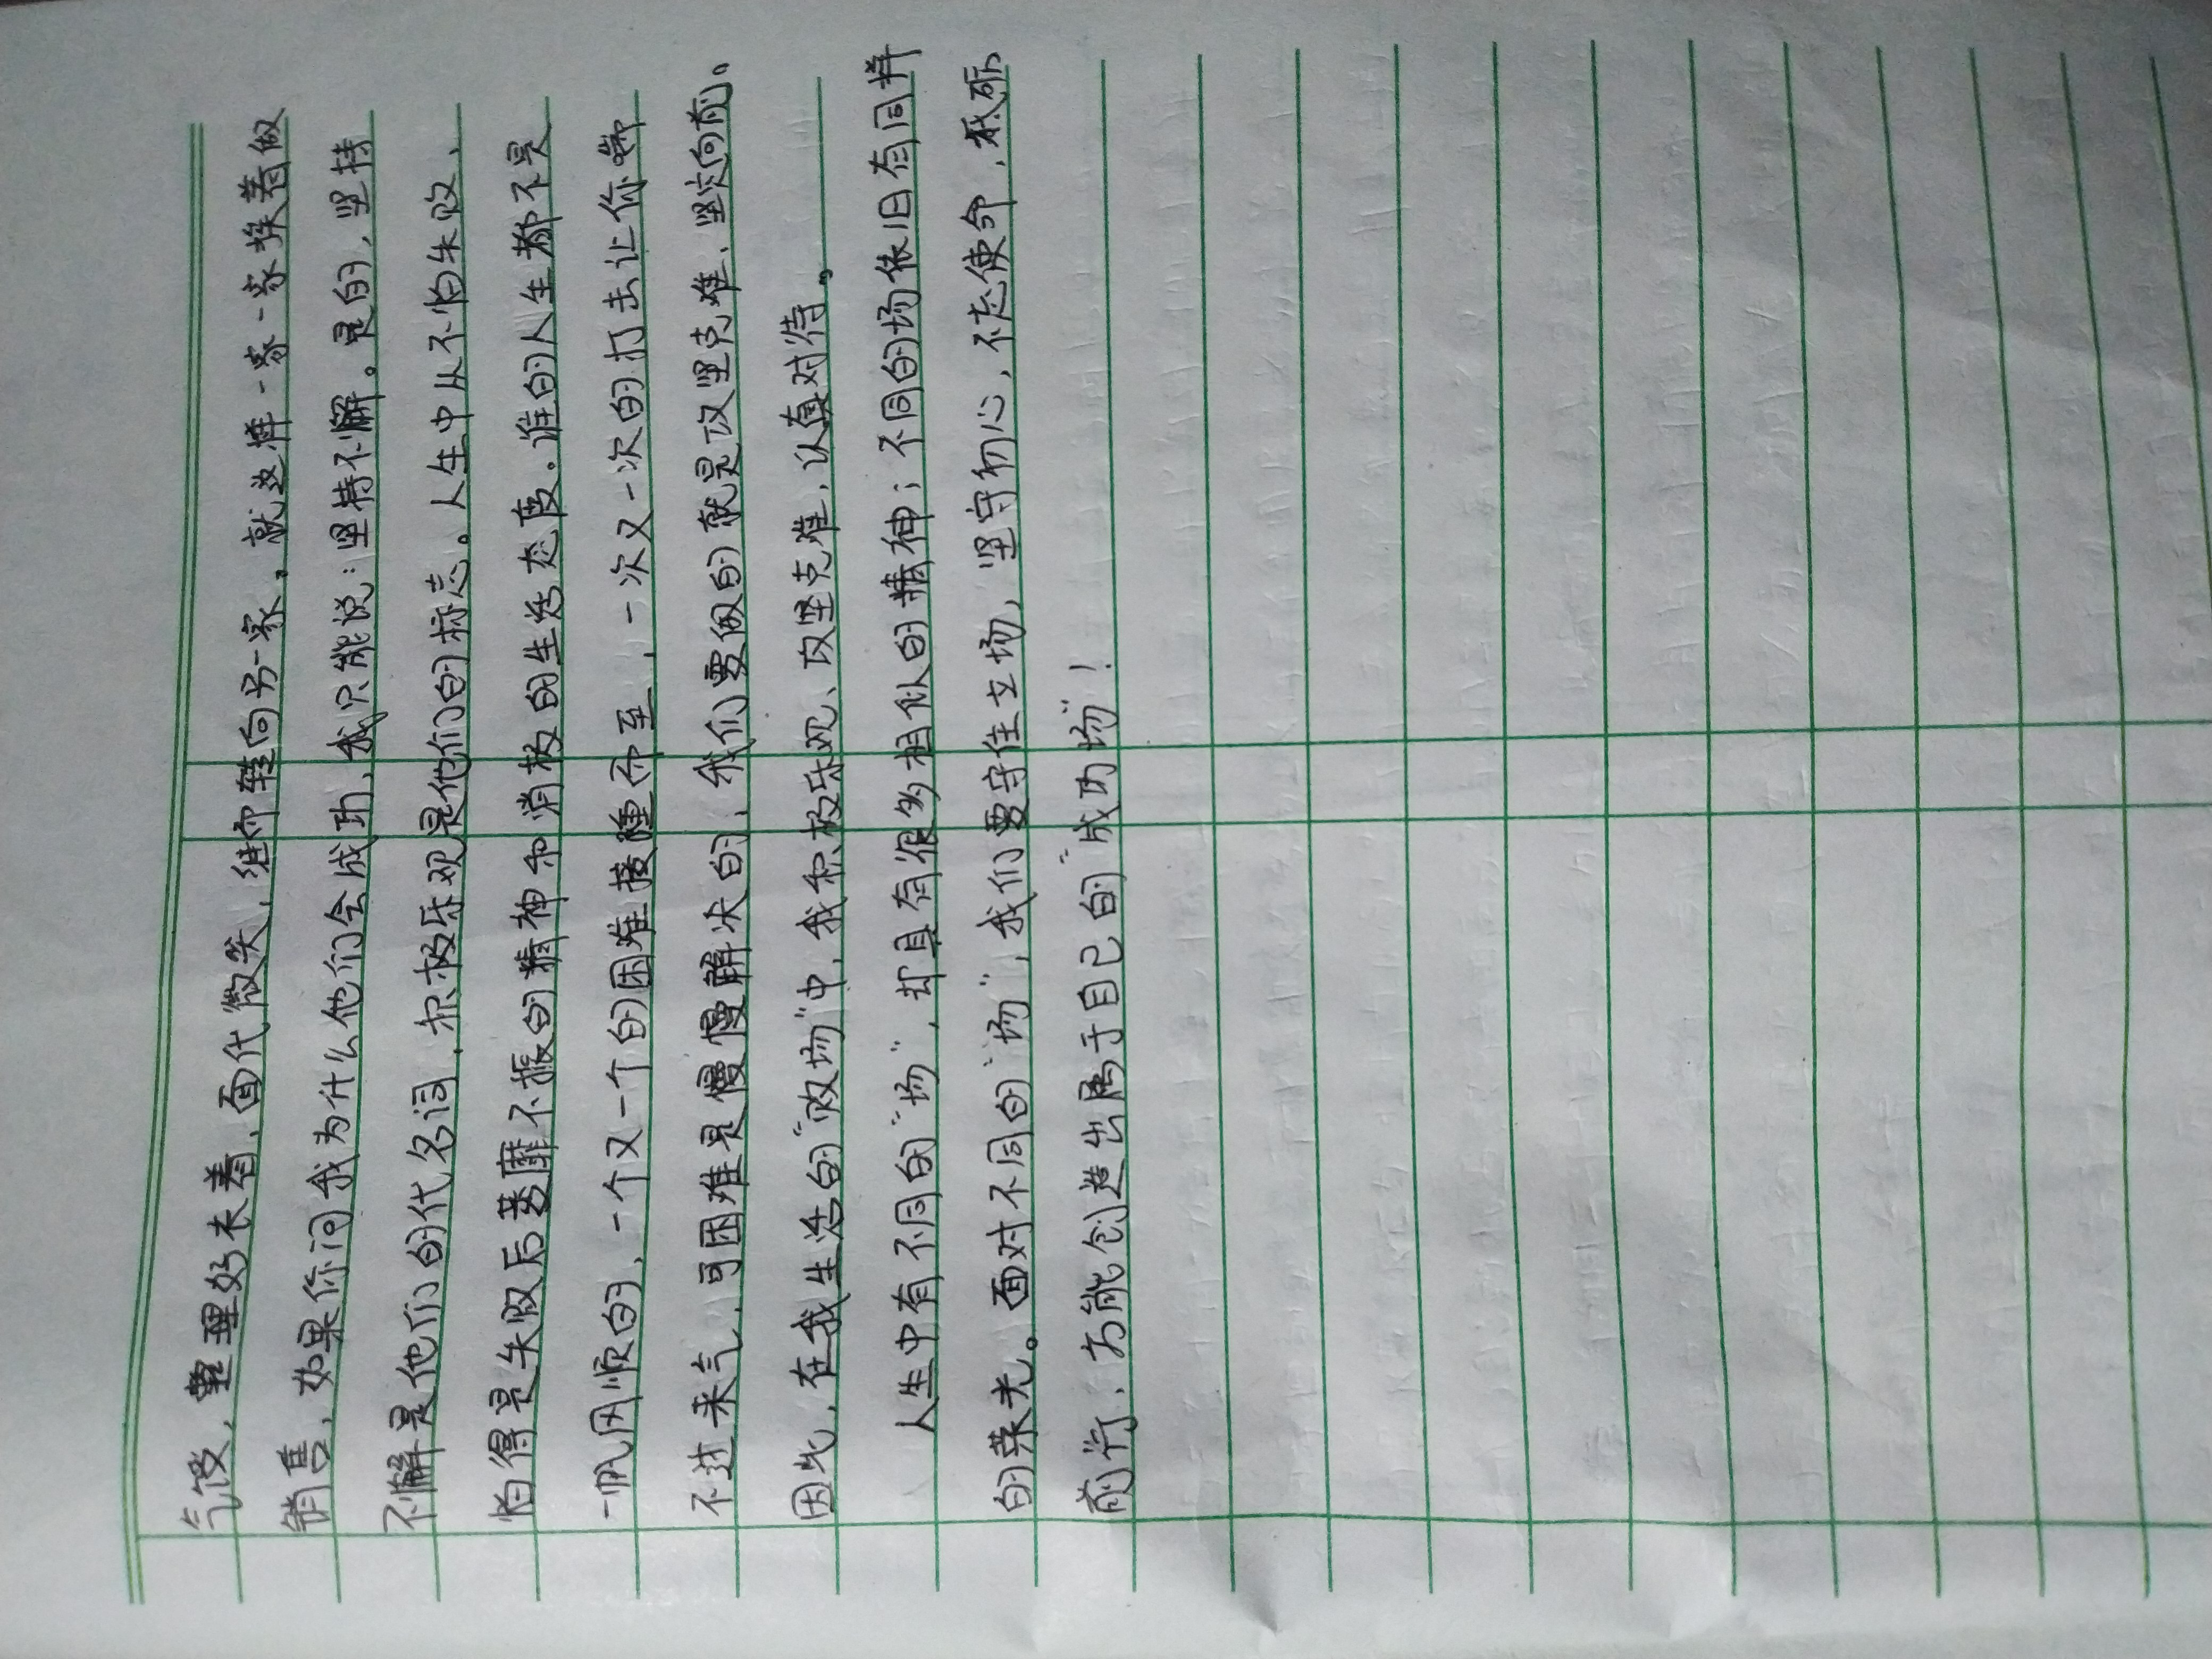 气馁，重理好衣着，面代微笑，继而转向另一家。就这样一家一家挨着做
销售，如果你问我为什么他们会成功，我只能说：坚持不懈。是的，坚持
不懈是他们的代名词，积极乐观是他们的标志。人生中从不怕失败，
怕得是失败后萎靡不振的精神和消极的生活态度。谁的人生都不是
一帆风顺的，一个又一个的困难接踵而至，一次又一次的打击让你喘
不过来气，可困难是慢慢解决的，我们要做的就是攻坚克难，坚定向前。
因此，在我生活的“败场”中，我积极乐观、攻坚克难，认真对待。
人生中有不同的“场”，却具有很多相似的精神；不同的场依旧有同样
的荣光。面对不同的“场”，我们要守住立场，坚守初心，不忘使命，砥砺
前行，方能创造出属于自己的“成功场”！